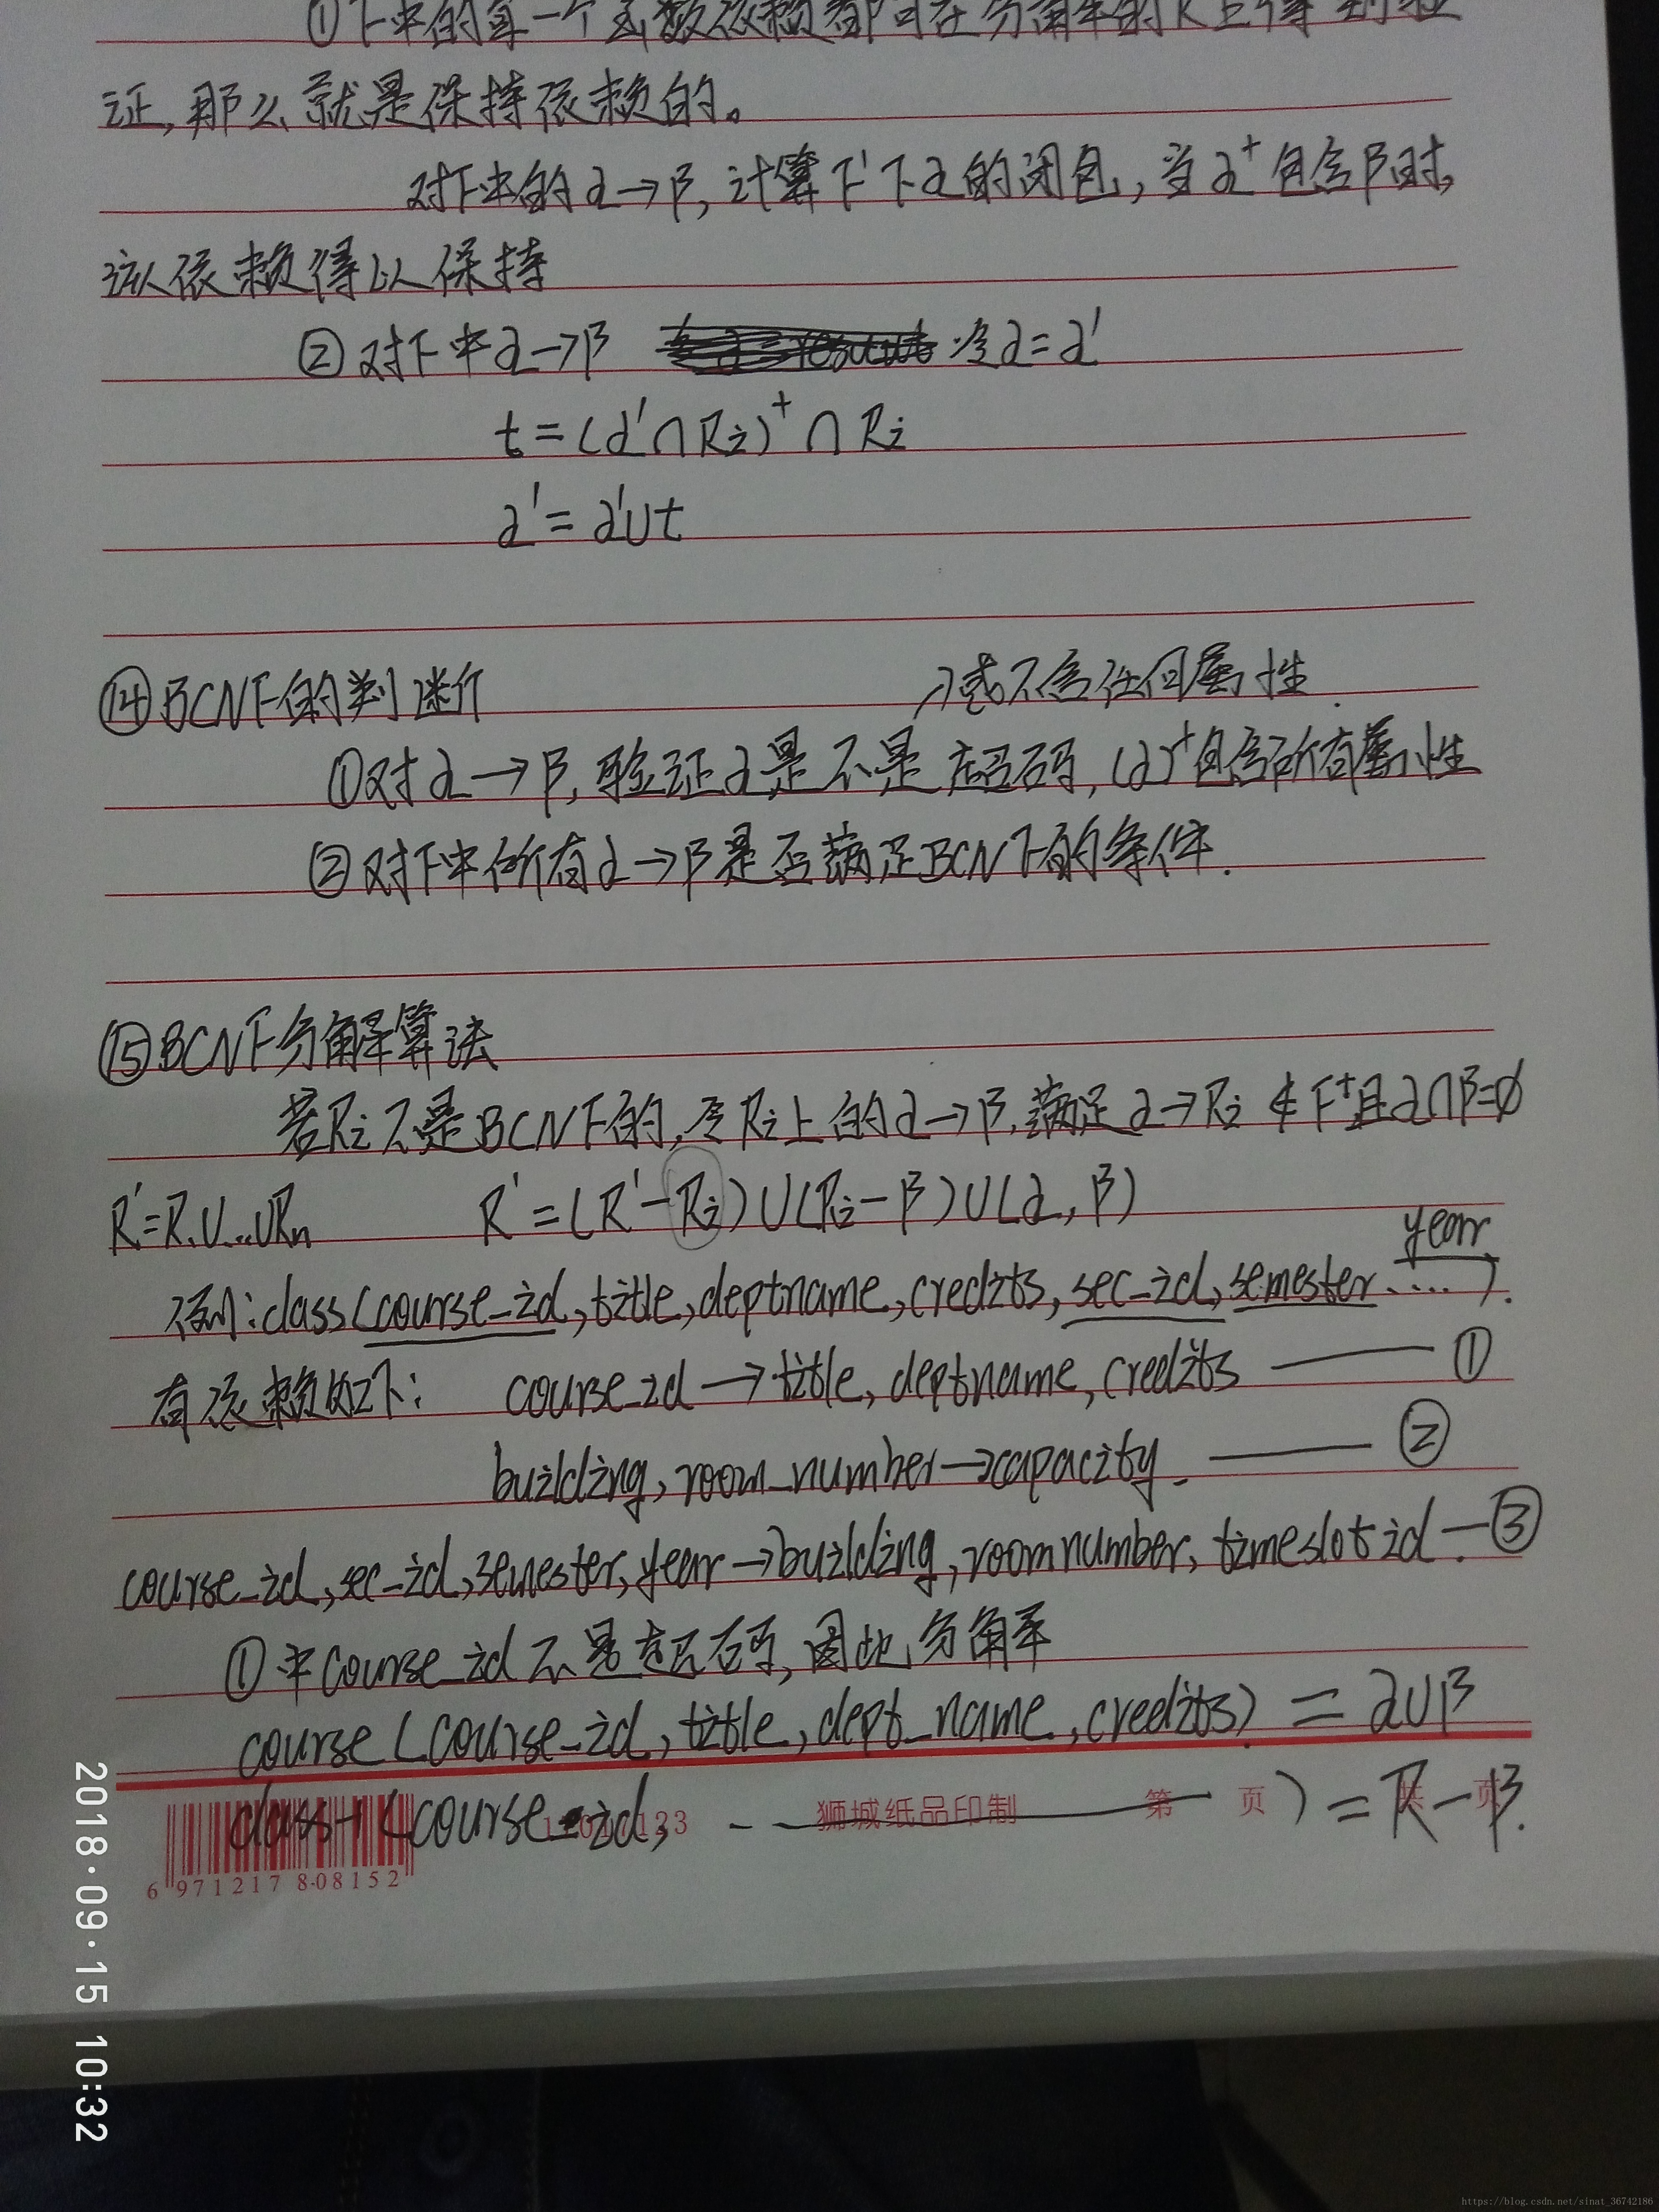 ①F中的每一个函数依赖都可在分解的R上得到验
证,那么就是保持依赖的。
对F中的α→β,计算F'下α的闭包,当α⁺包含β时,
该依赖得以保持
②对F中α→β 令α=α'
t=(α'∩Ri)⁺∩Ri
α'=α'∪t
⑭BCNF的判断
或不含任何属性.
①对α→β,验证α是不是超码,(α)⁺包含所有属性
②对F中所有α→β是否满足BCNF的条件.
⑮BCNF分解算法
若Ri不是BCNF的,令Ri上的α→β,满足α→Ri∉F⁺且α∩β=∅
R'=R₁∪...∪Rn R'=(R'-Ri)∪(Ri-β)∪(α,β)
year
例:class(course_id,title,deptname,credits,sec_id,semester.....).
有依赖如下: course_id→title,deptname,credits —— ①
building,room_number→capacity. —— ②
course_id,sec_id,semester,year→building,roomnumber,timeslot id —③
①中course_id不是超码,因此分解
course(course_id,title,dept_name,credits)=α∪β
class-1(course_id, -- —— )=R-β.
狮城纸品印制 第 页 页
6 971217 808152
2018·09·15 10:32
https://blog.csdn.net/sinat_36742186